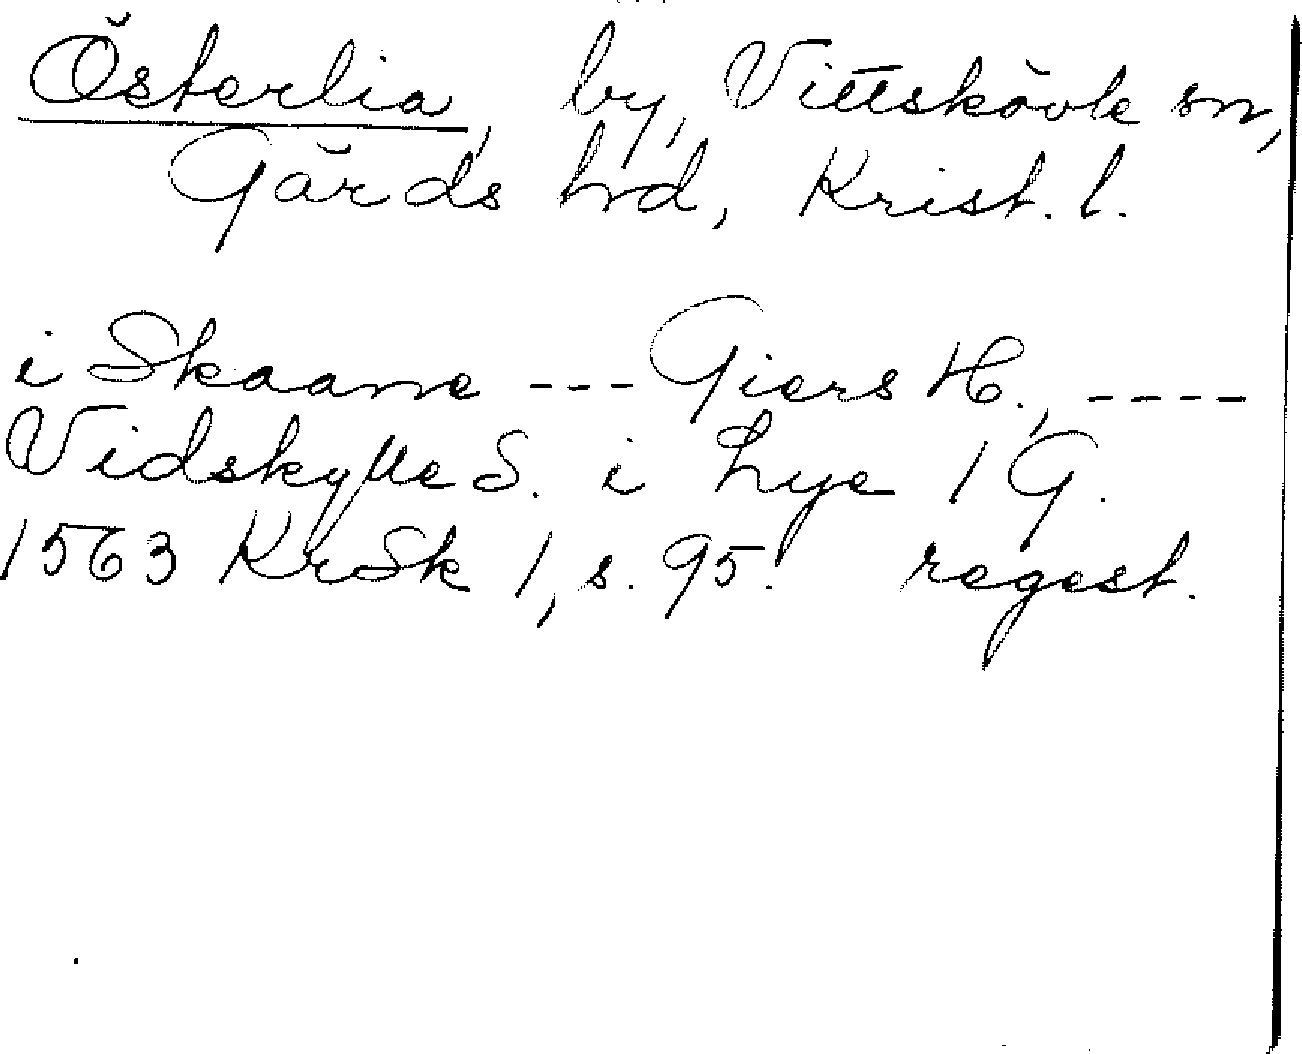 Österlia, by, Vittskövle sn,
Gärds hrd, Krist. l.
i Skaane --- Giers H., ----
Vidskyffle S. i Lye 1 G.
1563 KrSk 1, s. 95. regest.